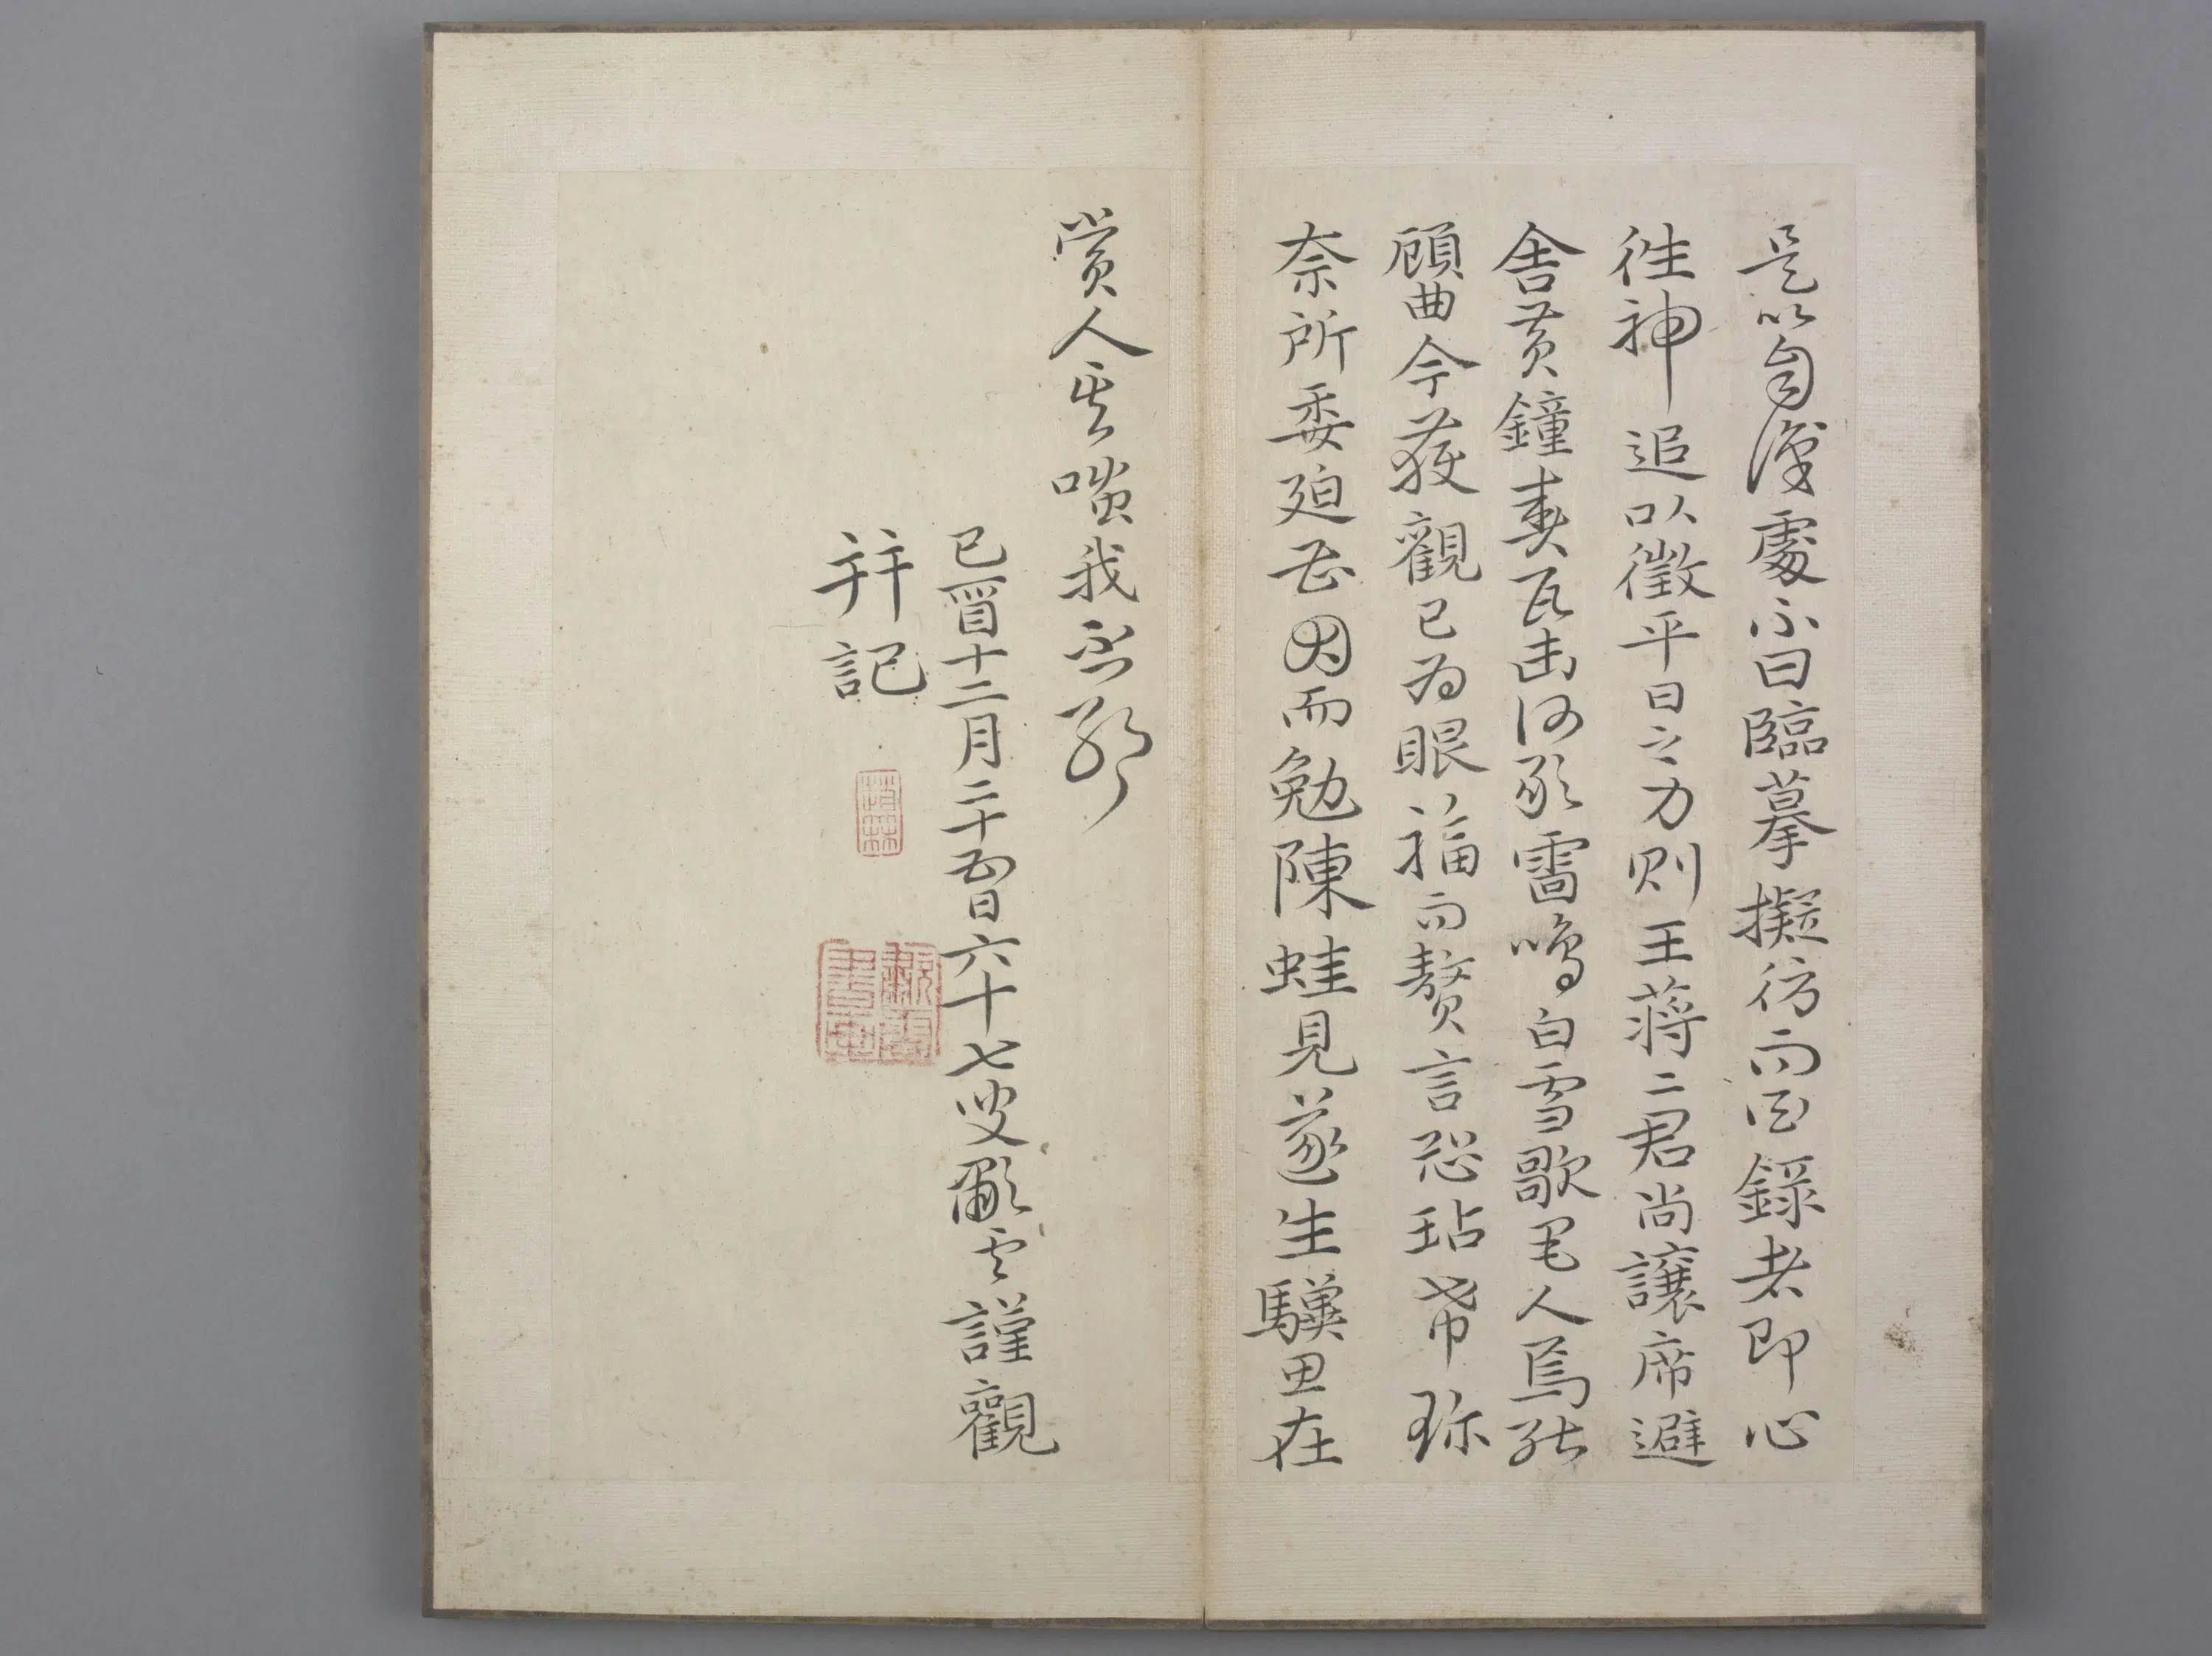 是以自謙處不曰臨摹擬仿而曰錄者即心
往神追以徵平日之力则王蔣二君尚讓席避
舍黄鐘棄瓦缶何敢雷鳴白雪歌毛人焉能
顧曲今獲觀已为眼福而贅言恐玷希珎
奈所委廹甚因而勉陳蛙見遂生驥思在
賞人其嗤我否耶
己酉十二月二十五日六十七叟雲謹觀
并記